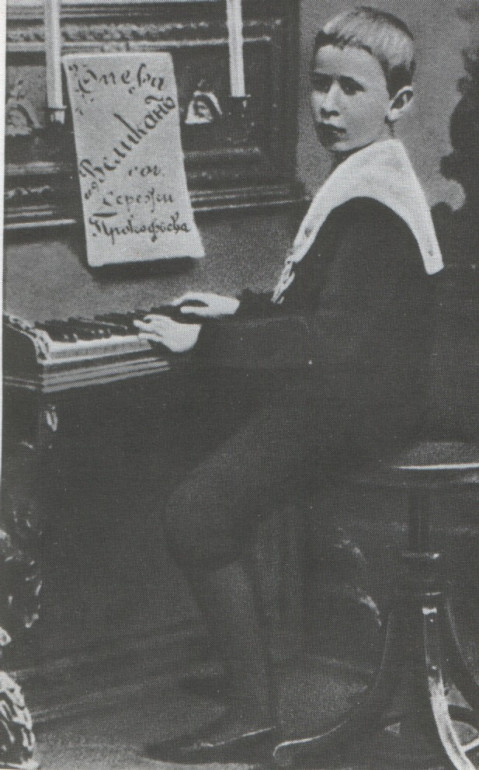 Опера
„Великанъ
соч.
Сережи
Прокофьева